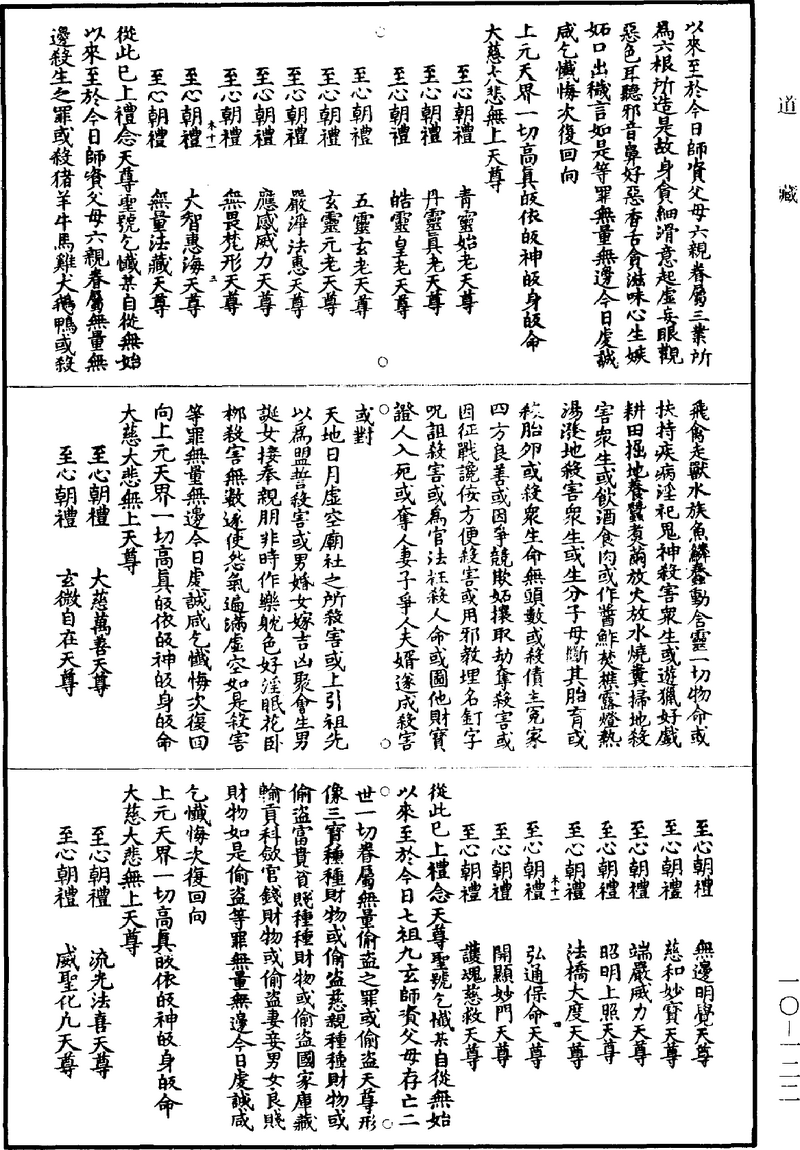 道藏
以來至於今日師資父母六親眷屬三業所
為六根所造是故身貪細滑意起虛妄眼觀
惡色耳聽邪音鼻好惡香舌貪滋味心生嫉
妬口出穢言如是等罪無量無邊今日虔誠
咸乞懺悔次復回向
上元天界一切高真皈依皈神皈身皈命
大慈大悲無上天尊
至心朝禮　青靈始老天尊
至心朝禮　丹靈真老天尊
至心朝禮　皓靈皇老天尊
至心朝禮　五靈玄老天尊
至心朝禮　玄靈元老天尊
至心朝禮　嚴淨法惠天尊
至心朝禮　應感威力天尊
至心朝禮　無畏梵形天尊
至心朝禮　大智惠海天尊
至心朝禮　無量法藏天尊
從此已上禮念天尊聖號乞懺某自從無始
以來至於今日師資父母六親眷屬無量無
邊殺生之罪或殺猪羊牛馬雞犬鵝鴨或殺
飛禽走獸水族魚鱗蠢動含靈一切物命或
扶持疾病淫祀鬼神殺害衆生或遊獵好戲
耕田掘地養蠶煮繭放火放水燒糞掃地殺
害衆生或飲酒食肉或作醬鮓焚樵露燈熱
湯潑地殺害衆生或生分子母斷其胎育或
殺胎卵或殺衆生命無頭數或殺債主冤家
四方良善或因爭競欺妬攘取劫奪殺害或
因征戰讒佞方便殺害或用邪教埋名釘字
呪詛殺害或為官法枉殺人命或圖他財寶
證人入死或奪人妻子爭人夫婿遂成殺害
或對
天地日月虛空廟社之所殺害或上引祖先
以為盟誓殺害或男婚女嫁吉凶聚會生男
誕女接奉親朋非時作樂躭色好淫眠花卧
柳殺害無數遂使怨氣遍滿虛空如是殺害
等罪無量無邊今日虔誠咸乞懺悔次復回
向上元天界一切高真皈依皈神皈身皈命
大慈大悲無上天尊
至心朝禮　大慈萬善天尊
至心朝禮　玄微自在天尊
至心朝禮　無邊明覺天尊
至心朝禮　慈和妙寶天尊
至心朝禮　端嚴威力天尊
至心朝禮　昭明上照天尊
至心朝禮　法橋大度天尊
至心朝禮　弘通保命天尊
至心朝禮　開顯妙門天尊
至心朝禮　護魂慈救天尊
從此已上禮念天尊聖號乞懺某自從無始
以來至於今日七祖九玄師資父母存亡二
世一切眷屬無量偷盗之罪或偷盗天尊形
像三寶種種財物或偷盗慈親種種財物或
偷盗富貴貧賤種種財物或偷盗國家庫藏
輸貢科斂官錢財物或偷盗妻妾男女良賤
財物如是偷盗等罪無量無邊今日虔誠咸
乞懺悔次復回向
上元天界一切高真皈依皈神皈身皈命
大慈大悲無上天尊
至心朝禮　流光法喜天尊
至心朝禮　威聖化凡天尊
一〇—一二二